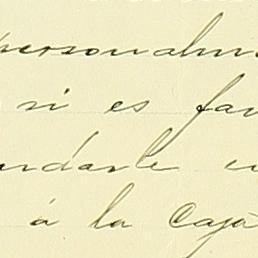 personalme
si es fav
ndarle u
á la Caja